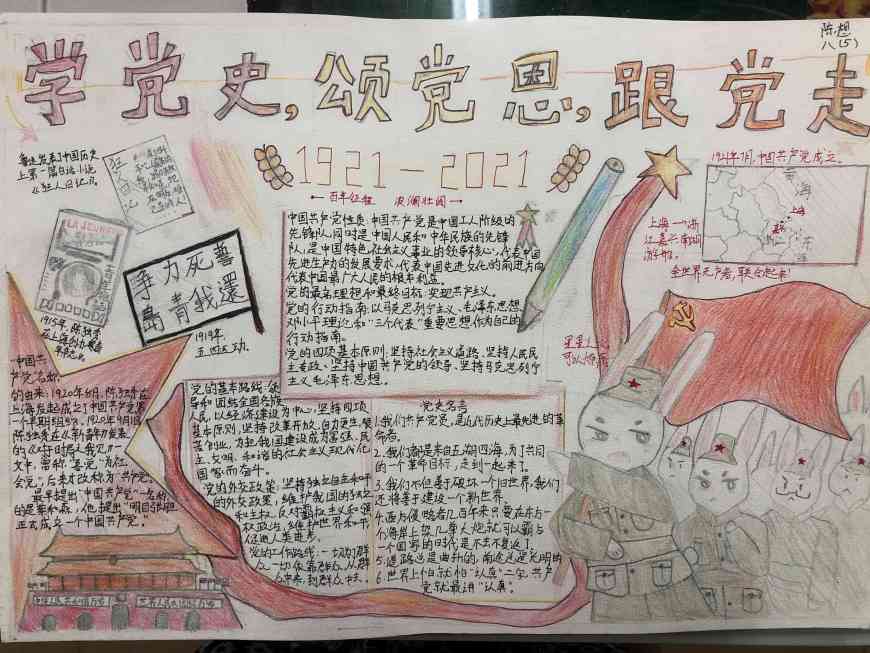 陈想
八(5)
学党史,颂党恩,跟党走
1921-2021
←百年征程 波澜壮阔→
鲁迅发表了中国历史
上第一篇白话小说
《狂人日记》。
狂人日记
LA JEUNE
1915年,陈独秀
争力死誓
岛青我还
1919年
五四运动。
中国共产党性质:中国共产党是中国工人阶级的
先锋队,同时是中国人民和中华民族的先锋
队,是中国特色社会主义事业的领导核心,代表中国
先进生产力的发展要求,代表中国先进文化的前进方向
代表中国最广大人民的根本利益。
党的最高理想和最终目标:实现共产主义。
党的行动指南:以马克思列宁主义、毛泽东思想、
邓小平理论和“三个代表”重要思想作为自己的
行动指南。
党的四项基本原则:坚持社会主义道路、坚持人民民
主专政、坚持中国共产党的领导、坚持马克思列宁
主义毛泽东思想。
1921年7月,中国共产党成立。
海
上海
东
海
上海一浙
江嘉兴南湖
游船。
全世界无产者,联合起来!
星星之火
可以燎原
“中国共
产党”名称
的由来:1920年8月,陈独秀在
上海发起成立了中国共产党第
一个早期组织。1920年9月1日
陈独秀在《新青年》发表
的《对于时局之我见》一
文中,曾称“吾党”为“社
会党”,后来才改称为“共产党”。
最早提出“中国共产党”一名称
的是蔡和森,他提出“明目张胆
正式成立一个中国共产党”。
党的基本路线:领
导和团结全国各族
人民,以经济建设为中心,坚持四项
基本原则,坚持改革开放,自力更生,艰
苦创业,为把我国建设成为富强、民
主、文明、和谐的社会主义现代化
国家而奋斗。
党的外交政策:坚持独立自主和平
的外交政策,维护我国的独立
和主权,反对霸权主义和强
权政治,维护世界和平
促进人类进步。
党的工作路线:一切为群
众,一切依靠群众,从群
众中来,到群众中去。
党史名言
1.我们共产党员,是近代历史上最先进的革
命者。
2.我们都是来自五湖四海,为了共同
的一个革命目标,走到一起来了。
3.我们不但善于破坏一个旧世界,我们
还将善于建设一个新世界。
4.西方侵略者几百年来只要在东方一
个海岸上架几尊大炮就可以霸占
一个国家的时代是一去不复返了
5.道路总是曲折的,前途还是光明的
6.世界上怕就怕“认真”二字,共产
党就最讲“认真”。